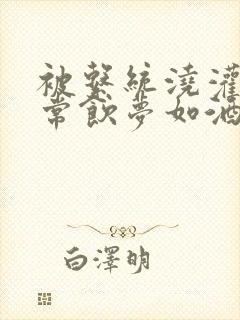 被繫統澆灌
常飲夢如酒
白澤明